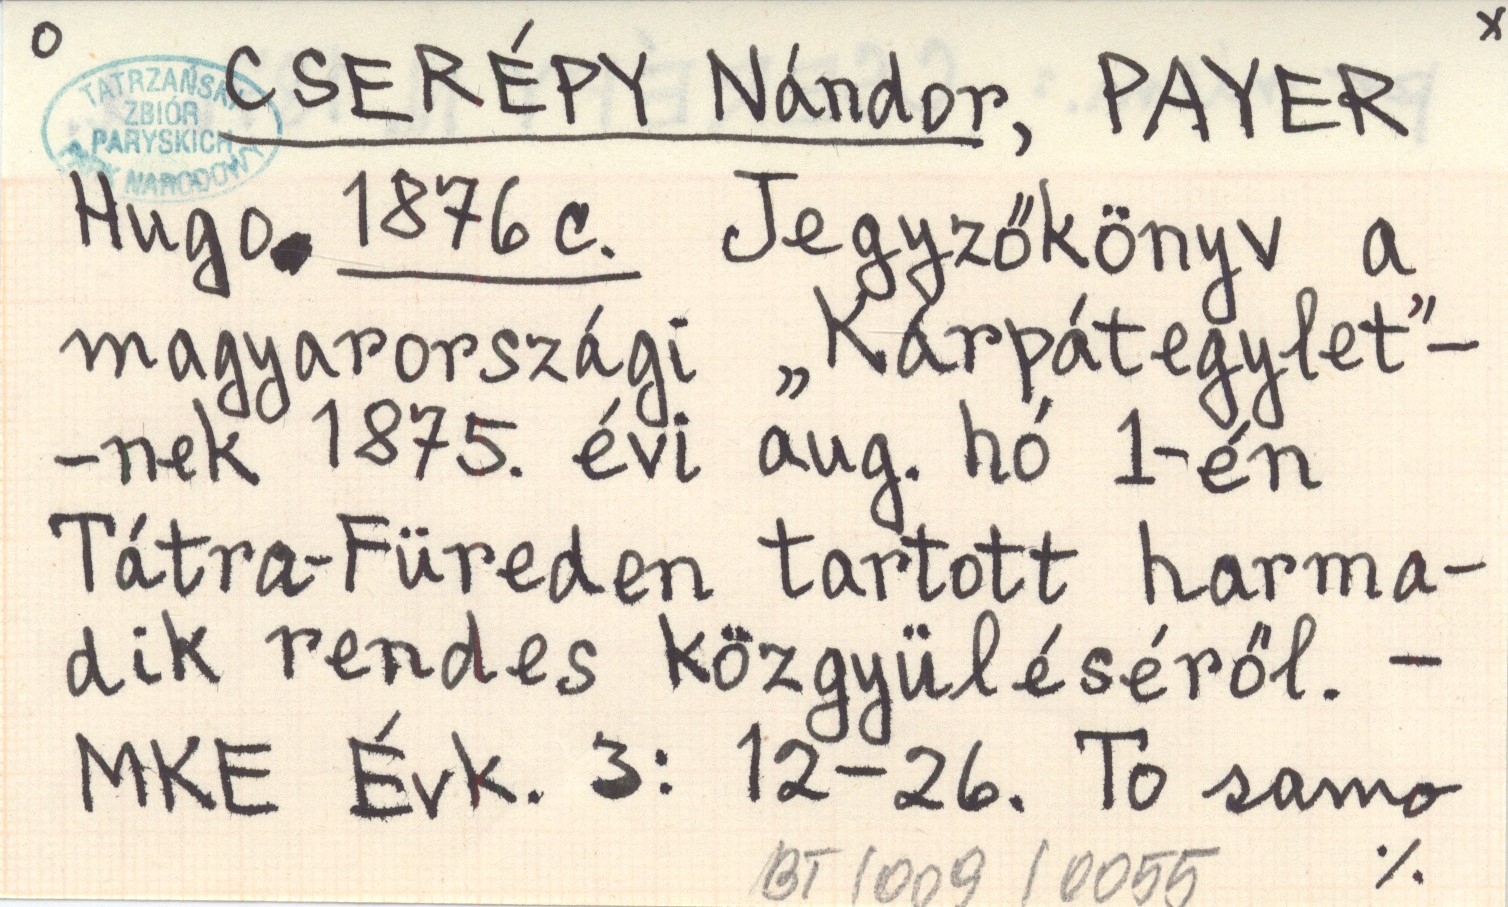 o x
CSERÉPY Nándor, PAYER
TATRZAŃSKI
ZBIÓR
PARYSKICH
NARODOWY
Hugo. 1876 c. Jegyzőkönyv a
magyarországi „Kárpátegylet”-
-nek 1875. évi aug. hó 1-én
Tátra-Füreden tartott harma-
dik rendes közgyüléséről. –
MKE Évk. 3: 12–26. To samo
BT/009/0055 ·/.